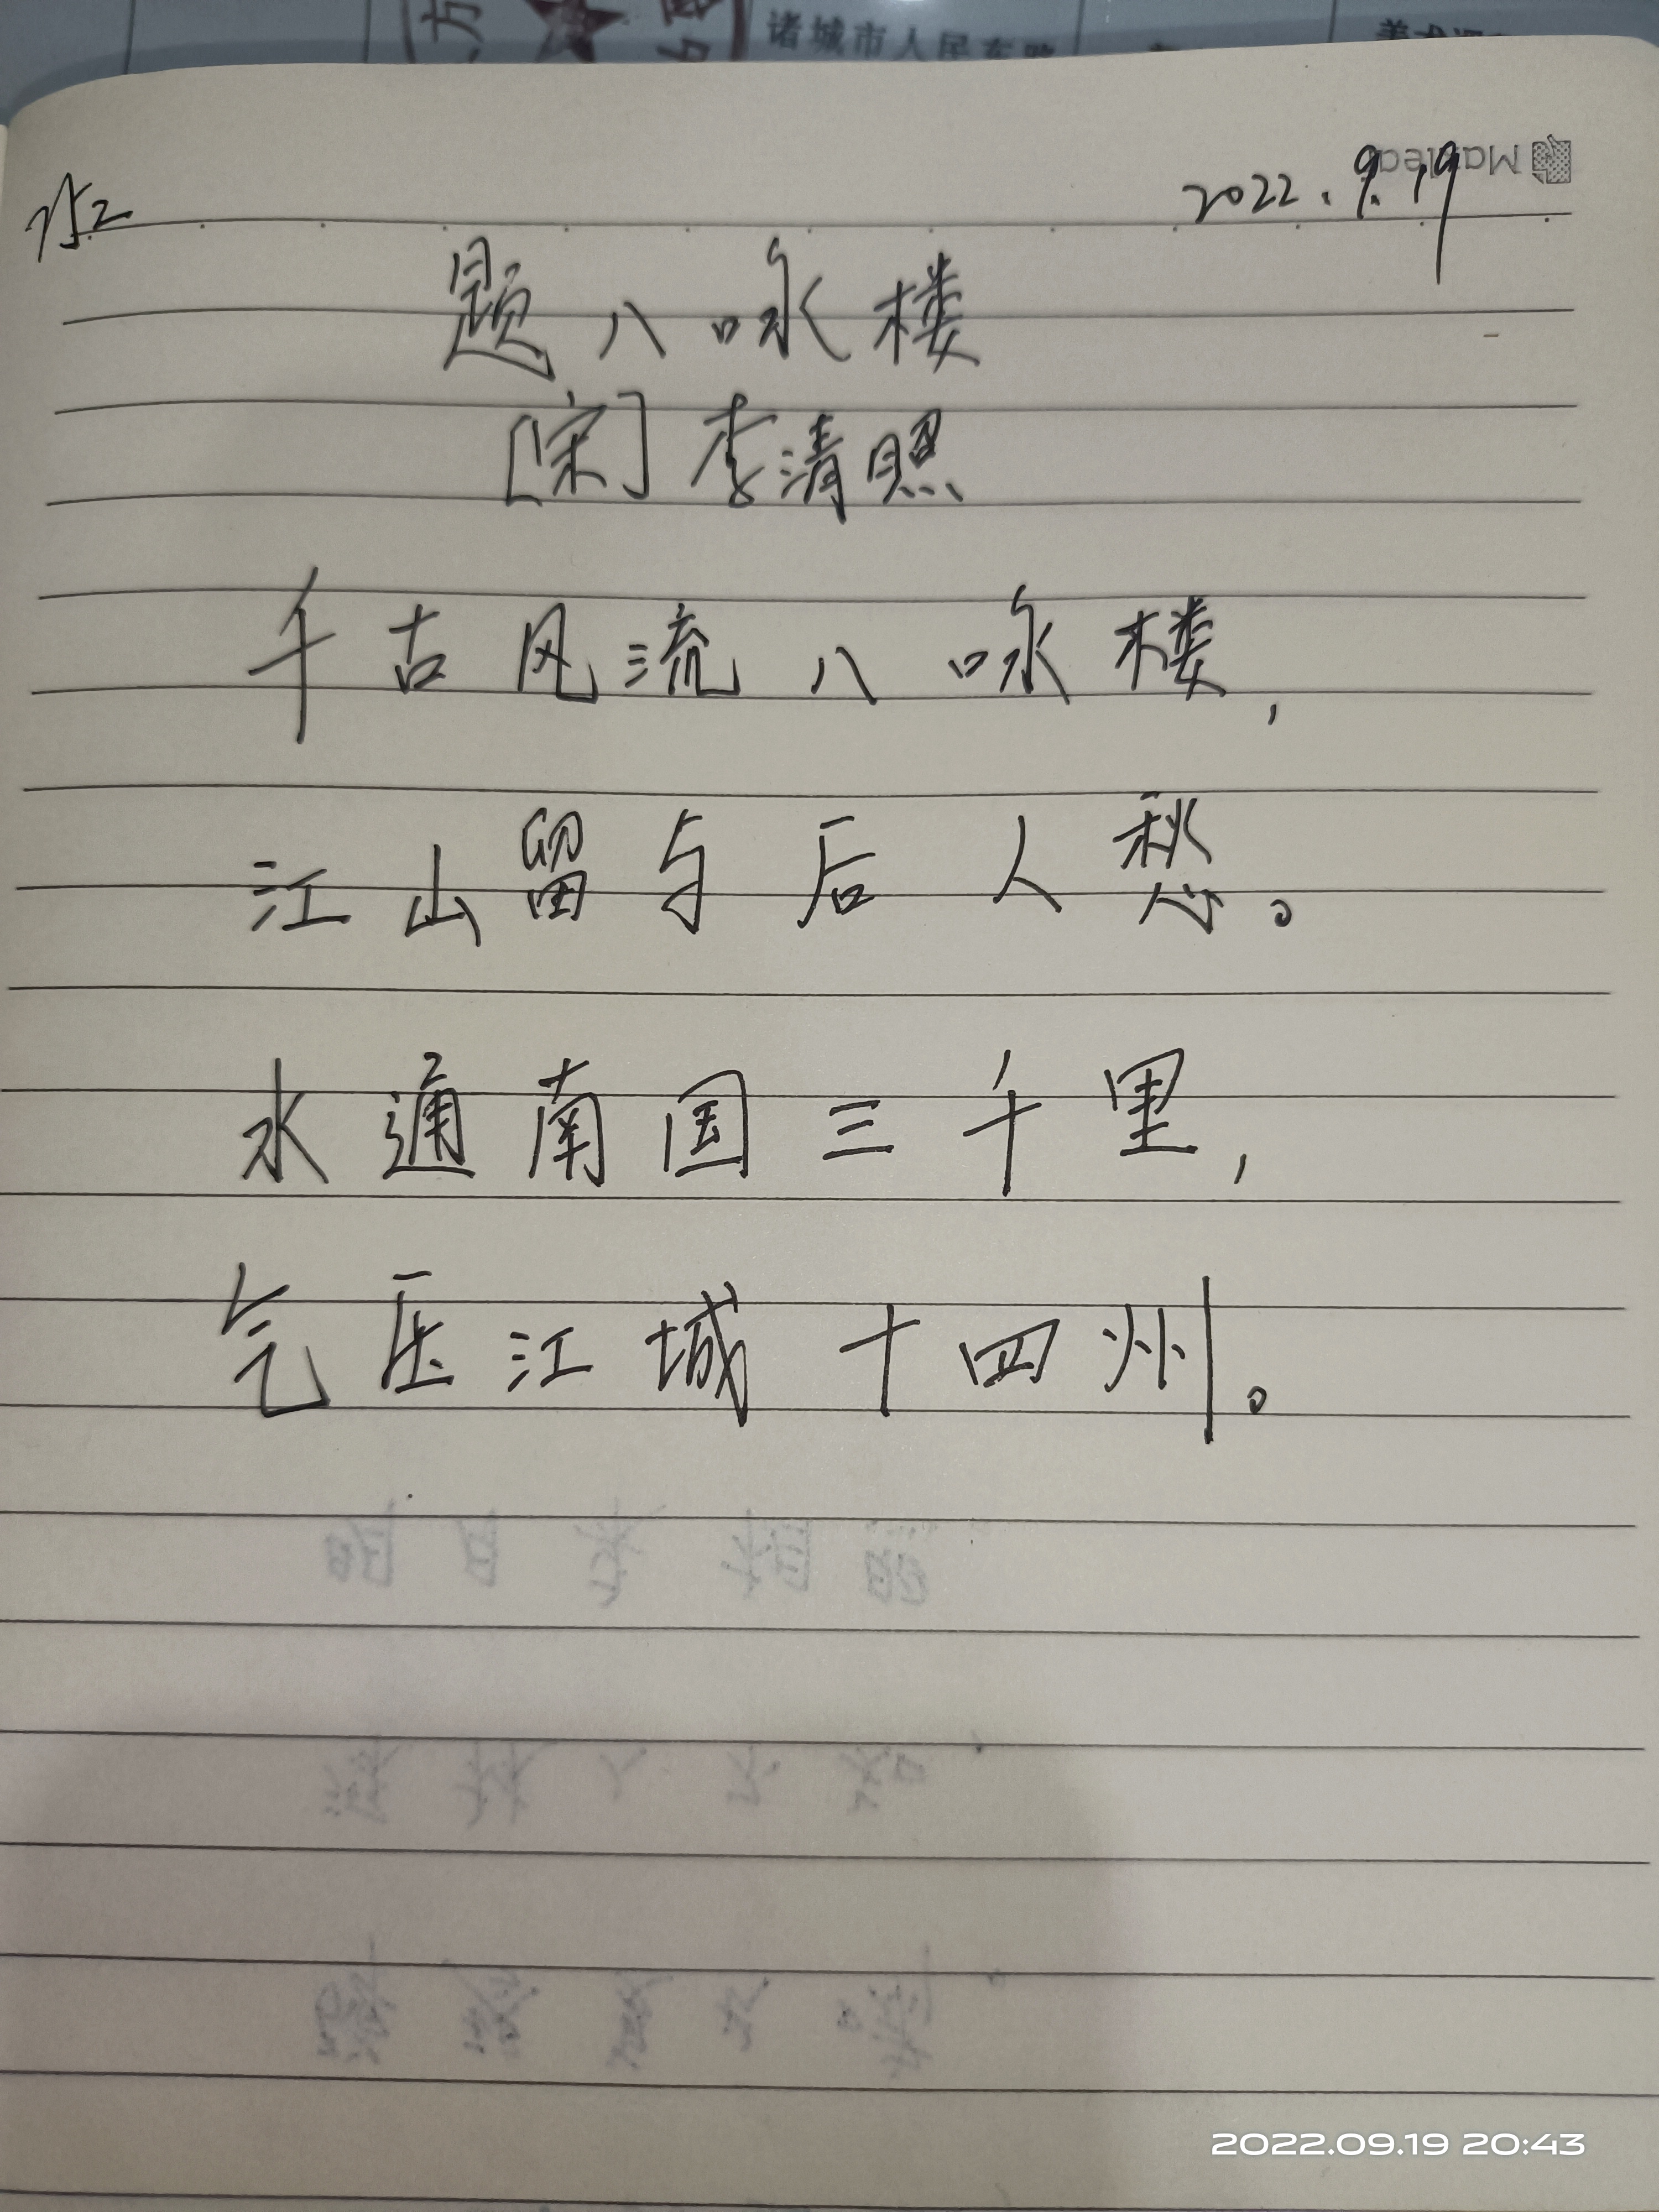 诸城市人民东路
2022.9.19
题八咏楼
[宋]李清照
千古风流八咏楼,
江山留与后人愁。
水通南国三千里,
气压江城十四州。
2022.09.19 20:43